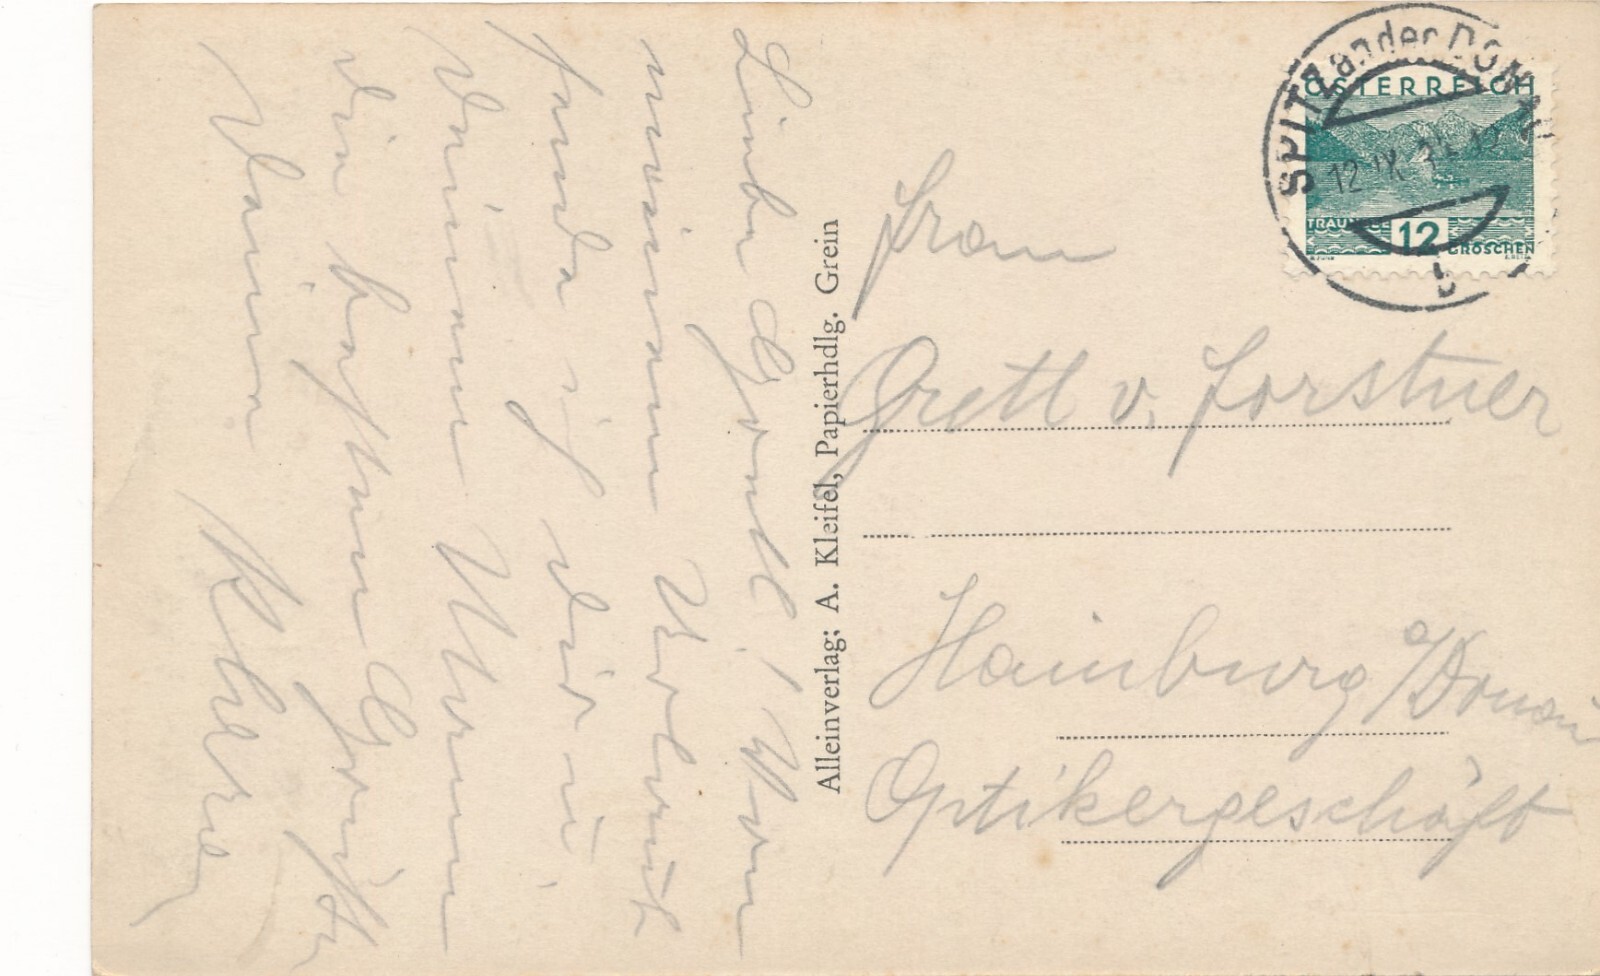 Liebe Gretl! Von
meinem Urlaub
sende ich dir u
Deinem Mann
die besten Grüße
Deine
Alleinverlag; A. Kleifel, Papierhdlg. Grein
SPITZ an der DONAU
12 IX
b
ÖSTERREICH
TRAUNSEE
12
GROSCHEN
Frau
Gretl v. Forstner
Hainburg a/Donau
Optikergeschäft